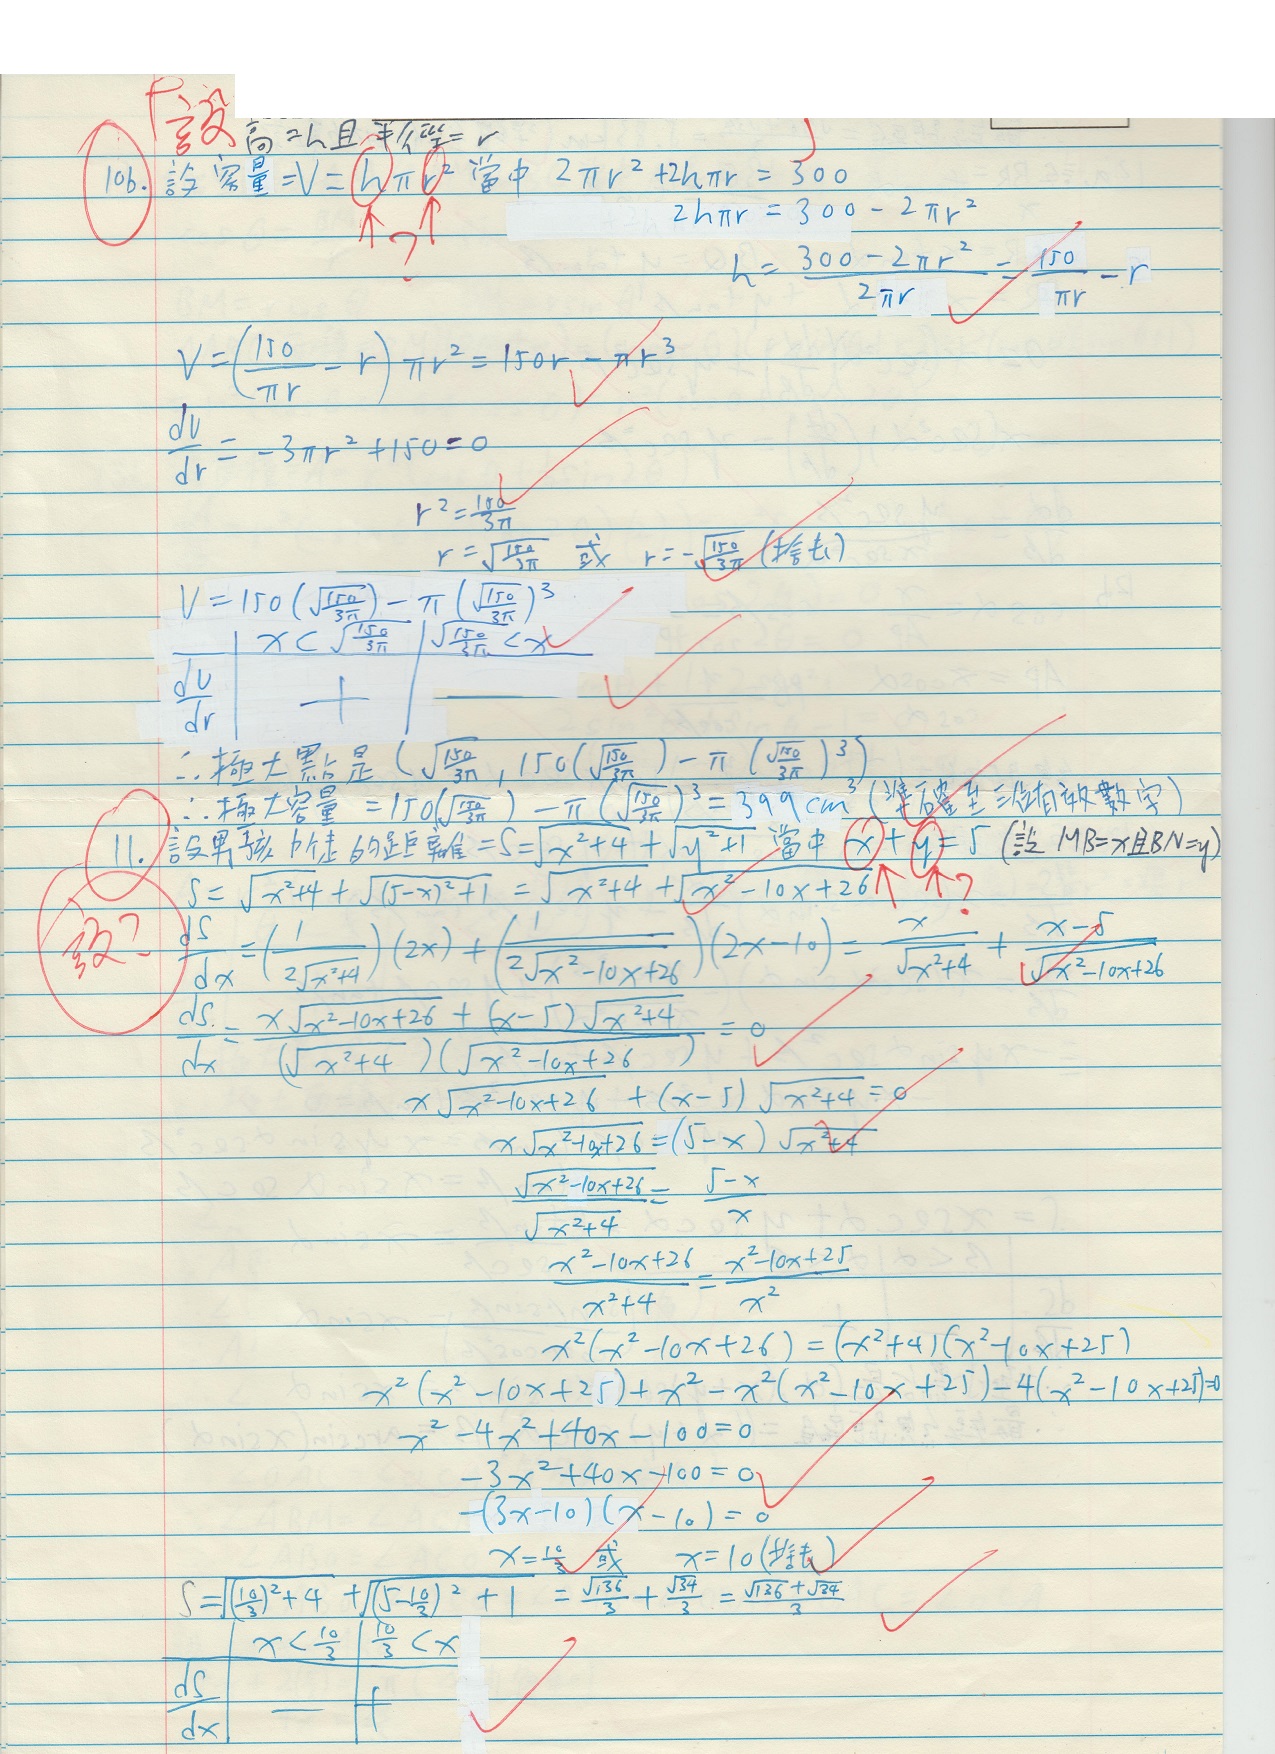 設
高=h且半徑=r
10b. 設容量=V=hπr² 當中 2πr²+2hπr = 300
?
2hπr = 300 - 2πr²
h = (300 - 2πr²)/(2πr) = 150/(πr) - r
V = (150/(πr) - r) πr² = 150r - πr³
dV/dr = -3πr² + 150 = 0
r² = 150/(3π)
r = √(150/(3π)) 或 r = -√(150/(3π)) (捨去)
V = 150(√(150/(3π))) - π(√(150/(3π)))³
x < √(150/(3π)) | √(150/(3π)) < x
dV/dr | + | -
∴極大點是 (√(150/(3π)), 150(√(150/(3π))) - π(√(150/(3π)))³)
∴極大容量 = 150(√(150/(3π))) - π(√(150/(3π)))³ = 399 cm³ (準確至三位有效數字)
11. 設男孩所走的距離 = S = √(x²+4) + √(y²+1) 當中 x+y = 5 (設 MB=x且BN=y)
S = √(x²+4) + √((5-x)²+1) = √(x²+4) + √(x²-10x+26)
?
設?
dS/dx = (1/(2√(x²+4)))(2x) + (1/(2√(x²-10x+26)))(2x-10) = x/√(x²+4) + (x-5)/√(x²-10x+26)
dS/dx = (x√(x²-10x+26) + (x-5)√(x²+4))/((√(x²+4))(√(x²-10x+26))) = 0
x√(x²-10x+26) + (x-5)√(x²+4) = 0
x√(x²-10x+26) = (5-x)√(x²+4)
√(x²-10x+26)/√(x²+4) = (5-x)/x
(x²-10x+26)/(x²+4) = (x²-10x+25)/x²
x²(x²-10x+26) = (x²+4)(x²-10x+25)
x²(x²-10x+25) + x² - x²(x²-10x+25) - 4(x²-10x+25) = 0
x² - 4x² + 40x - 100 = 0
-3x² + 40x - 100 = 0
-(3x-10)(x-10) = 0
x = 10/3 或 x = 10 (捨去)
S = √((10/3)²+4) + √((5-10/3)²+1) = √136/3 + √34/3 = (√136+√34)/3
x < 10/3 | 10/3 < x
dS/dx | - | +